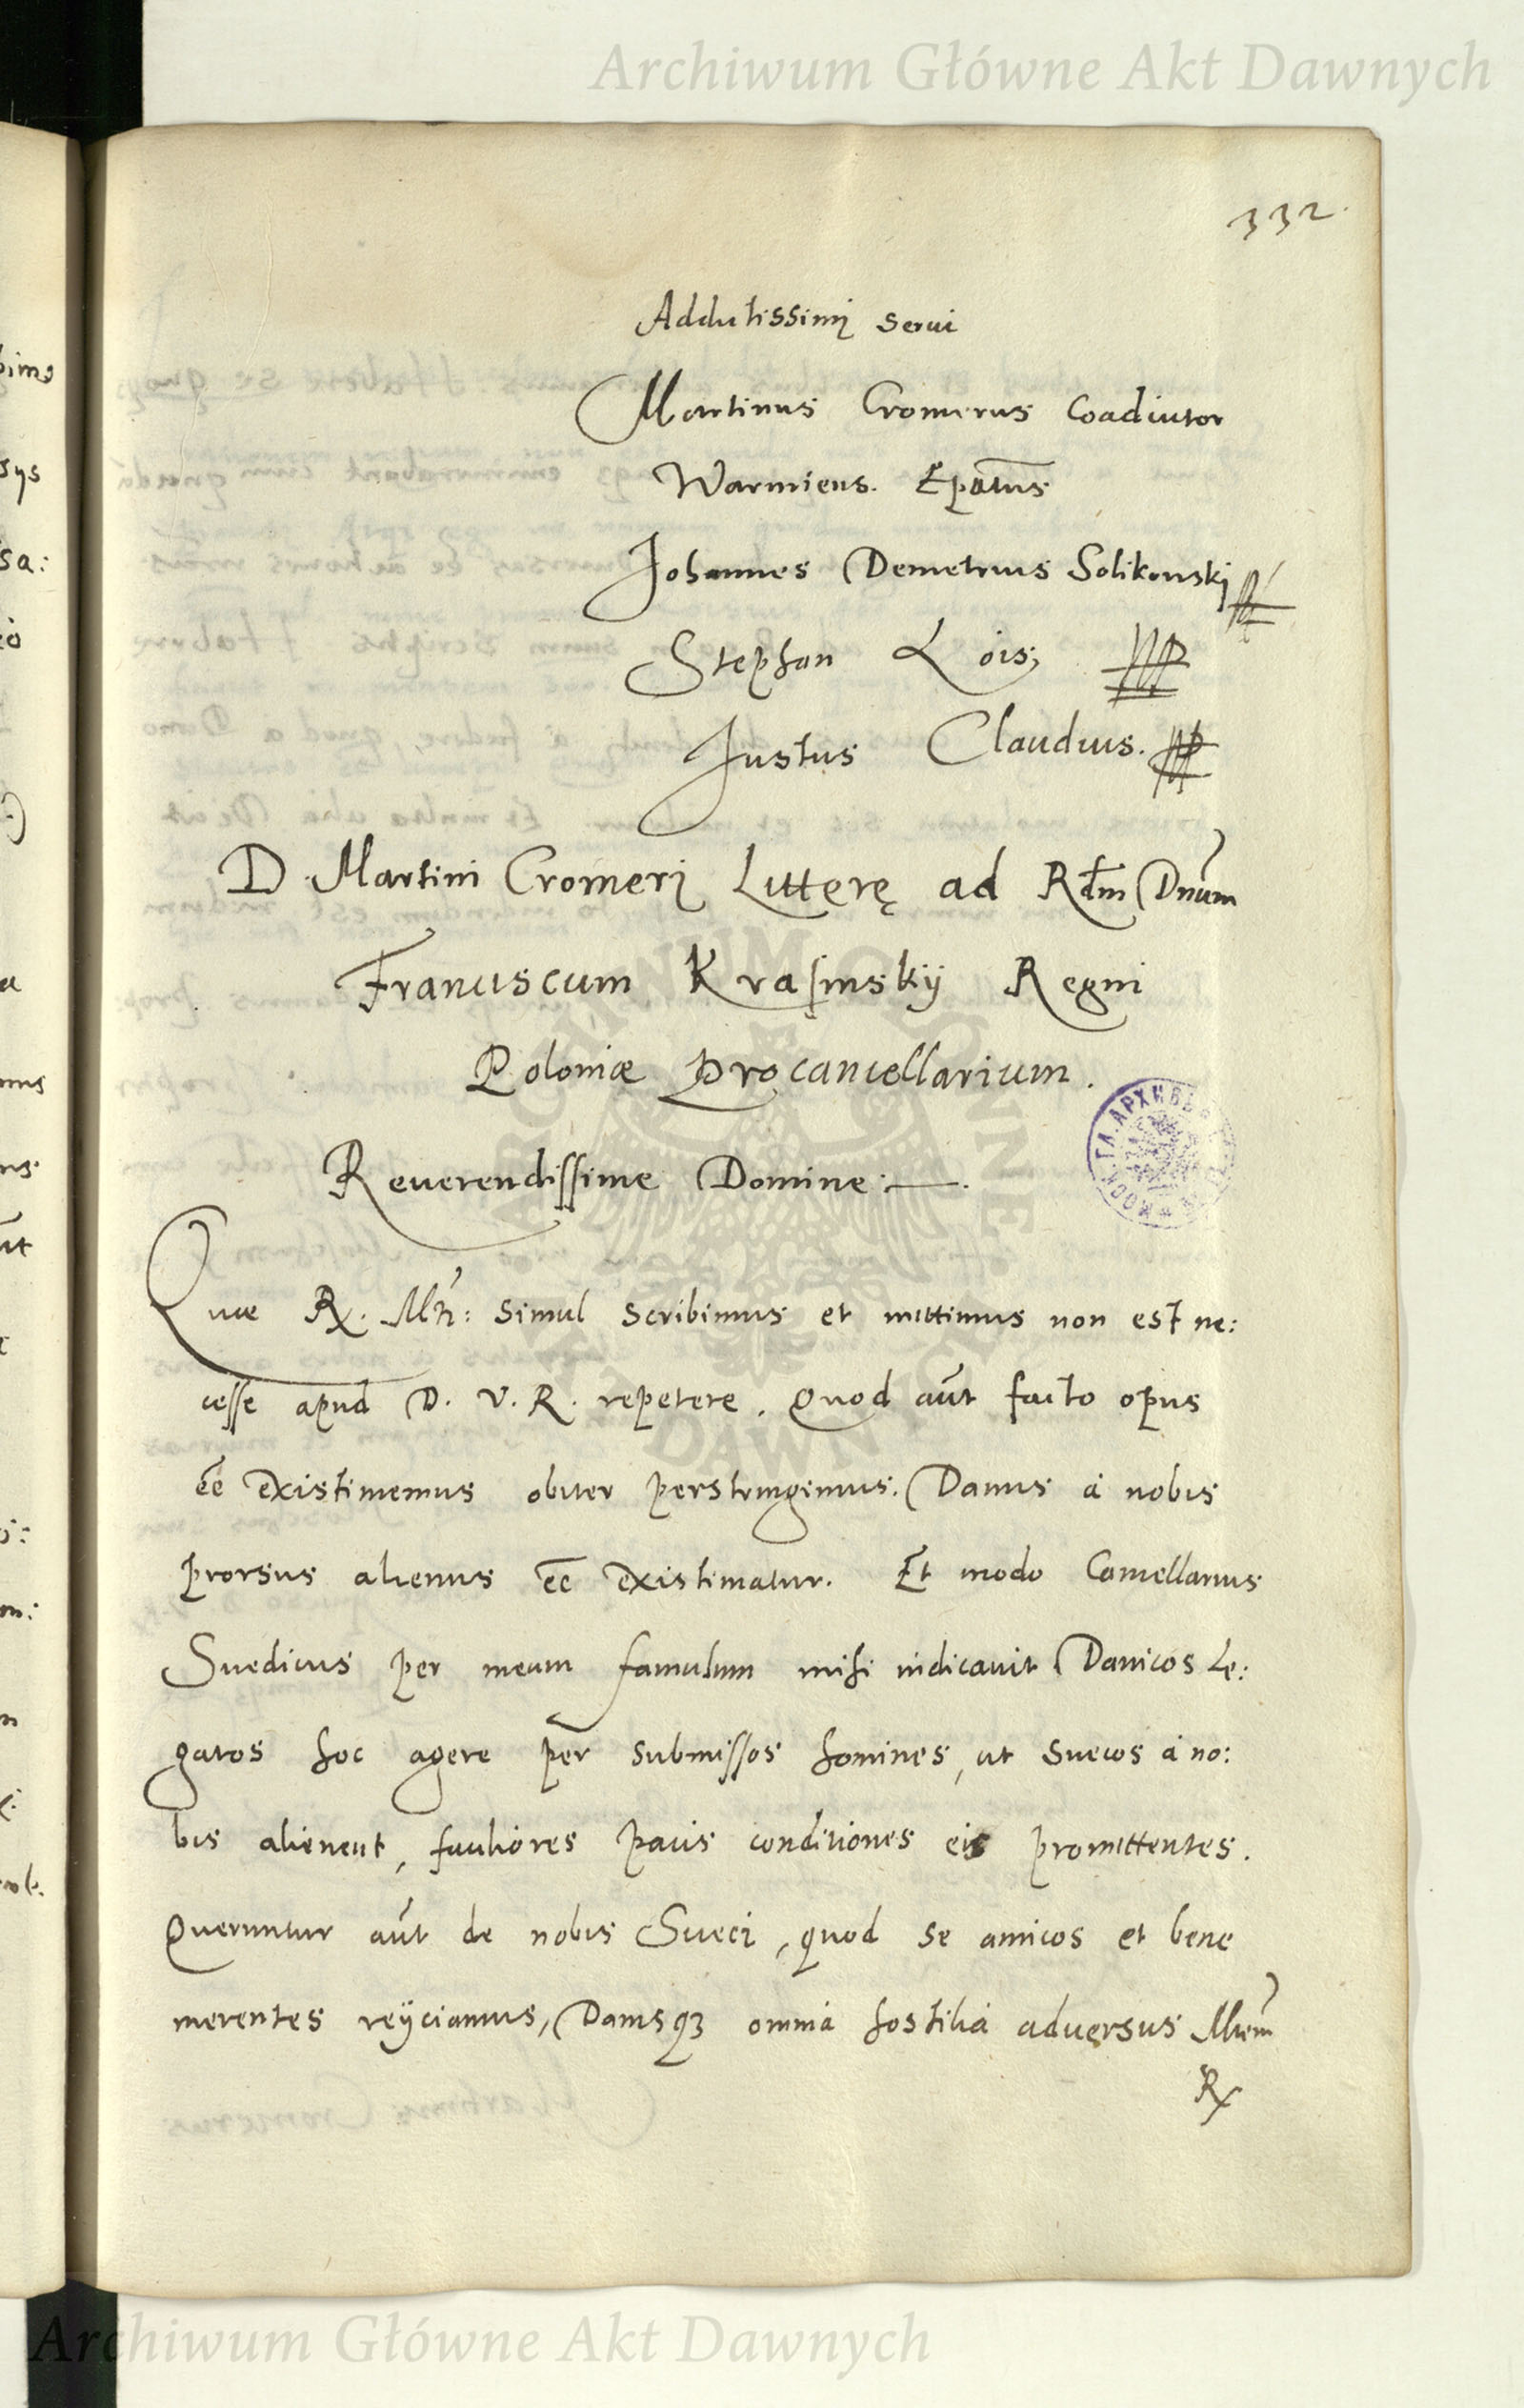 Archiwum Główne Akt Dawnych
332.
Addictissimi serui
Martinus Cromerus Coadiutor
Warmiens. Epatus
Johannes Demetrius Solikouskj
Stephan Lois,
Justus Claudius.
D. Martini Cromerj Litterę ad Rdm Dnum
Franciscum Krasinskij Regni
Poloniæ Procancellarium.
Reuerendissime Domine:
Quæ Rx. Mti: simul scribimus et mittimus non est ne:
cesse apud D. V. R. repetere. Quod aut facto opus
ee existimemus obiter perstringimus. Danus à nobis
prorsus alienus ee existimatur. Et modo Cancellarius
Suedicus per meum famulum mihi indicauit Danicos Le:
gatos hoc agere per submissos homines, ut Suecos à no:
bis alienent, faciliores pacis conditiones eis promittentes.
Queruntur aut de nobis Sueci, quod se amicos et bene
merentes reijciamus, Danisqʒ omnia hostilia aduersus Mtem
Rx
Archiwum Główne Akt Dawnych